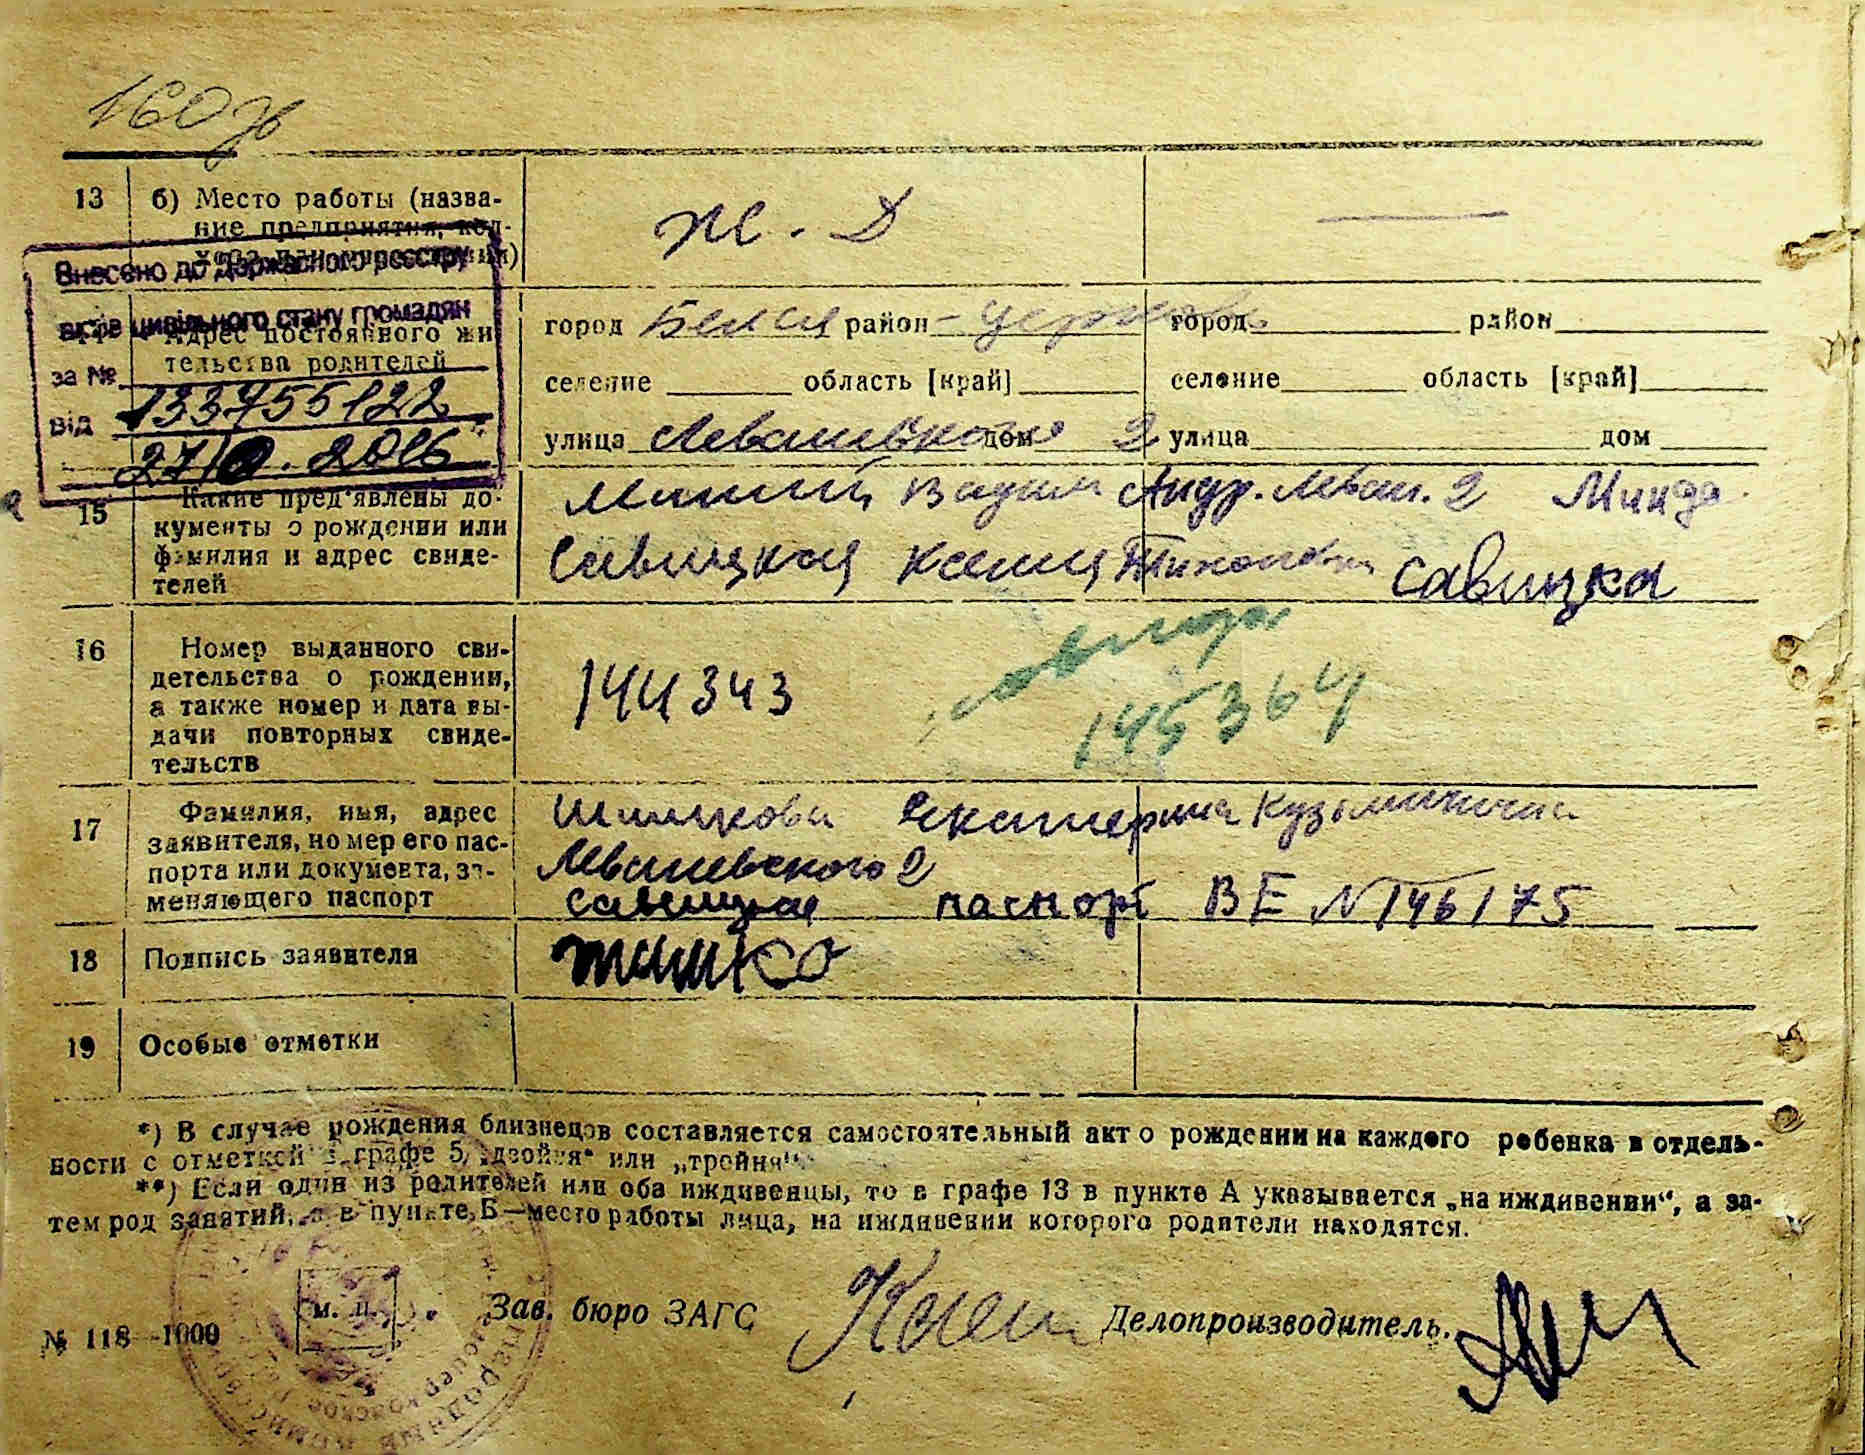 160
13 б) Место работы (назва-
ние предприятия, кол-
Ж. Д
Внесено до Державного реєстру
актів цивільного стану громадян
за № 133755122
від 27.10.2016
Адрес постоянного жи
тельства родителей
город Белая район - Церковь город район
селение область [край] селение область [край]
улица дом 2 улица дом
15 Какие пред'явлены до-
кументы о рождении или
фамилия и адрес свиде-
телей
Вадим Андр. 2
Савицкая Ксения Тихоновна Савицка
16 Номер выданного сви-
детельства о рождении,
а также номер и дата вы-
дачи повторных свиде-
тельств
144343
145364
17 Фамилия, имя, адрес
заявителя, номер его пас-
порта или документа, за-
меняющего паспорт
Екатерина Кузьминична
2
паспорт ВЕ № 146175
18 Подпись заявителя
19 Особые отметки
*) В случае рождения близнецов составляется самостоятельный акт о рождении на каждого ребенка в отдель-
ности с отметкой в графе 5 „двойня“ или „тройня“
**) Если один из родителей или оба иждивенцы, то в графе 13 в пункте А указывается „на иждивении“, а за-
тем род занятий, а в пункте Б—место работы лица, на иждивении которого родители находятся.
м. п. Зав. бюро ЗАГС Делопроизводитель.
№ 118—1000